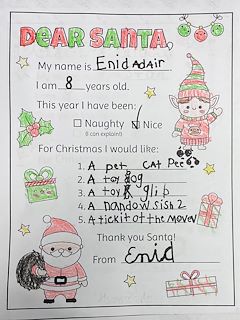 DEAR SANTA,
My name is Enid Adair
I am 8 years old.
This year I have been:
Naughty Nice
(I can explain!)
For Christmas I would like:
1. A pet cat Pee
2. A toy dog
3. A toy glib
4. A nandow sish 2
5. A tickit of the movev
Thank you Santa!
From Enid